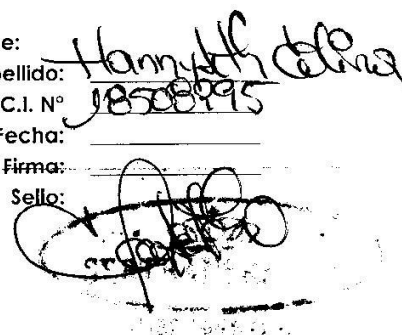 e:
ellido: Hannyth Colina
C.I. N° 18508995
Fecha:
Firma:
Sello: